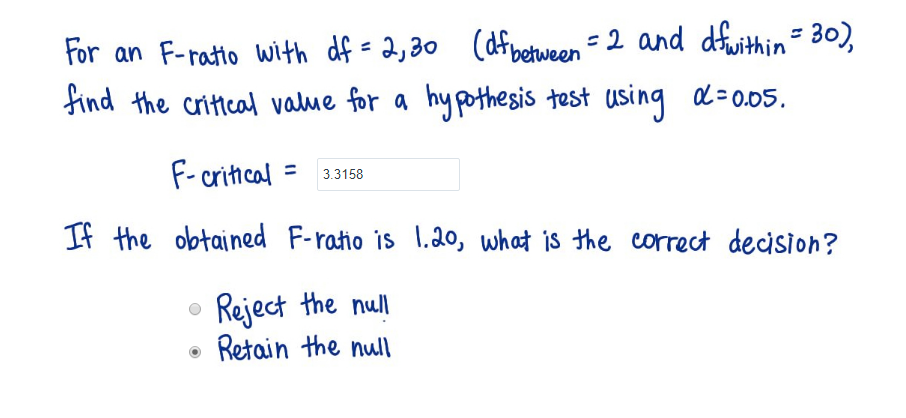 For an F-ratio with df = 2,30 (dfbetween = 2 and dfwithin = 30),
find the critical value for a hypothesis test using α=0.05.
F-critical = 3.3158
If the obtained F-ratio is 1.20, what is the correct decision?
Reject the null
Retain the null